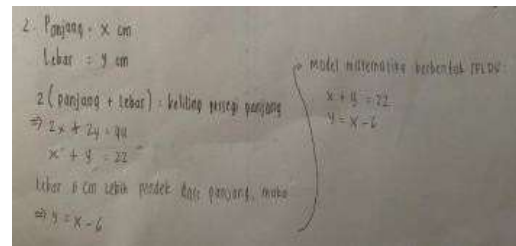 2. Panjang = x cm
Lebar = y cm
2 (panjang + lebar) = keliling persegi panjang
⇒ 2x + 2y = 44
x + y = 22
Lebar 6 cm lebih pendek dari panjang, maka
⇒ y = x - 6
Model matematika berbentuk SPLDV:
x + y = 22
y = x - 6